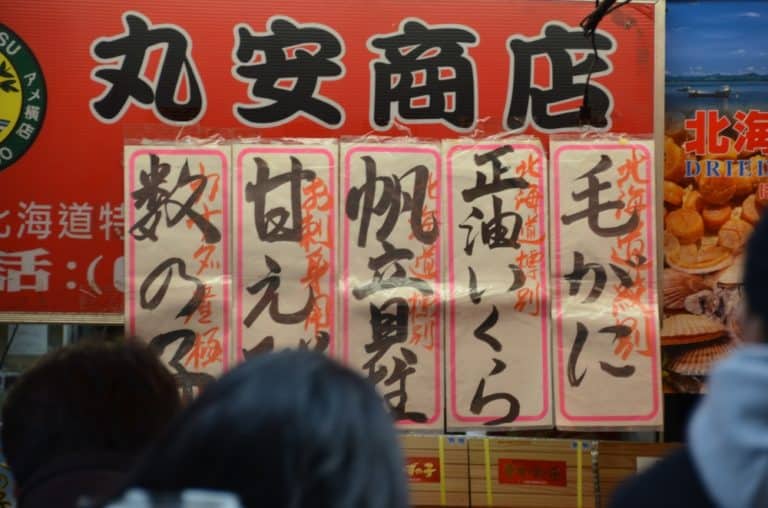 丸安商店
北海道特
活:(0
毛がに
北海道特別
正油いくら
北海道特別
帆立貝柱
北海道特別
甘え
お刺身用
数の子
カナダ産極
北海
DRIED
アメ横店
数の子